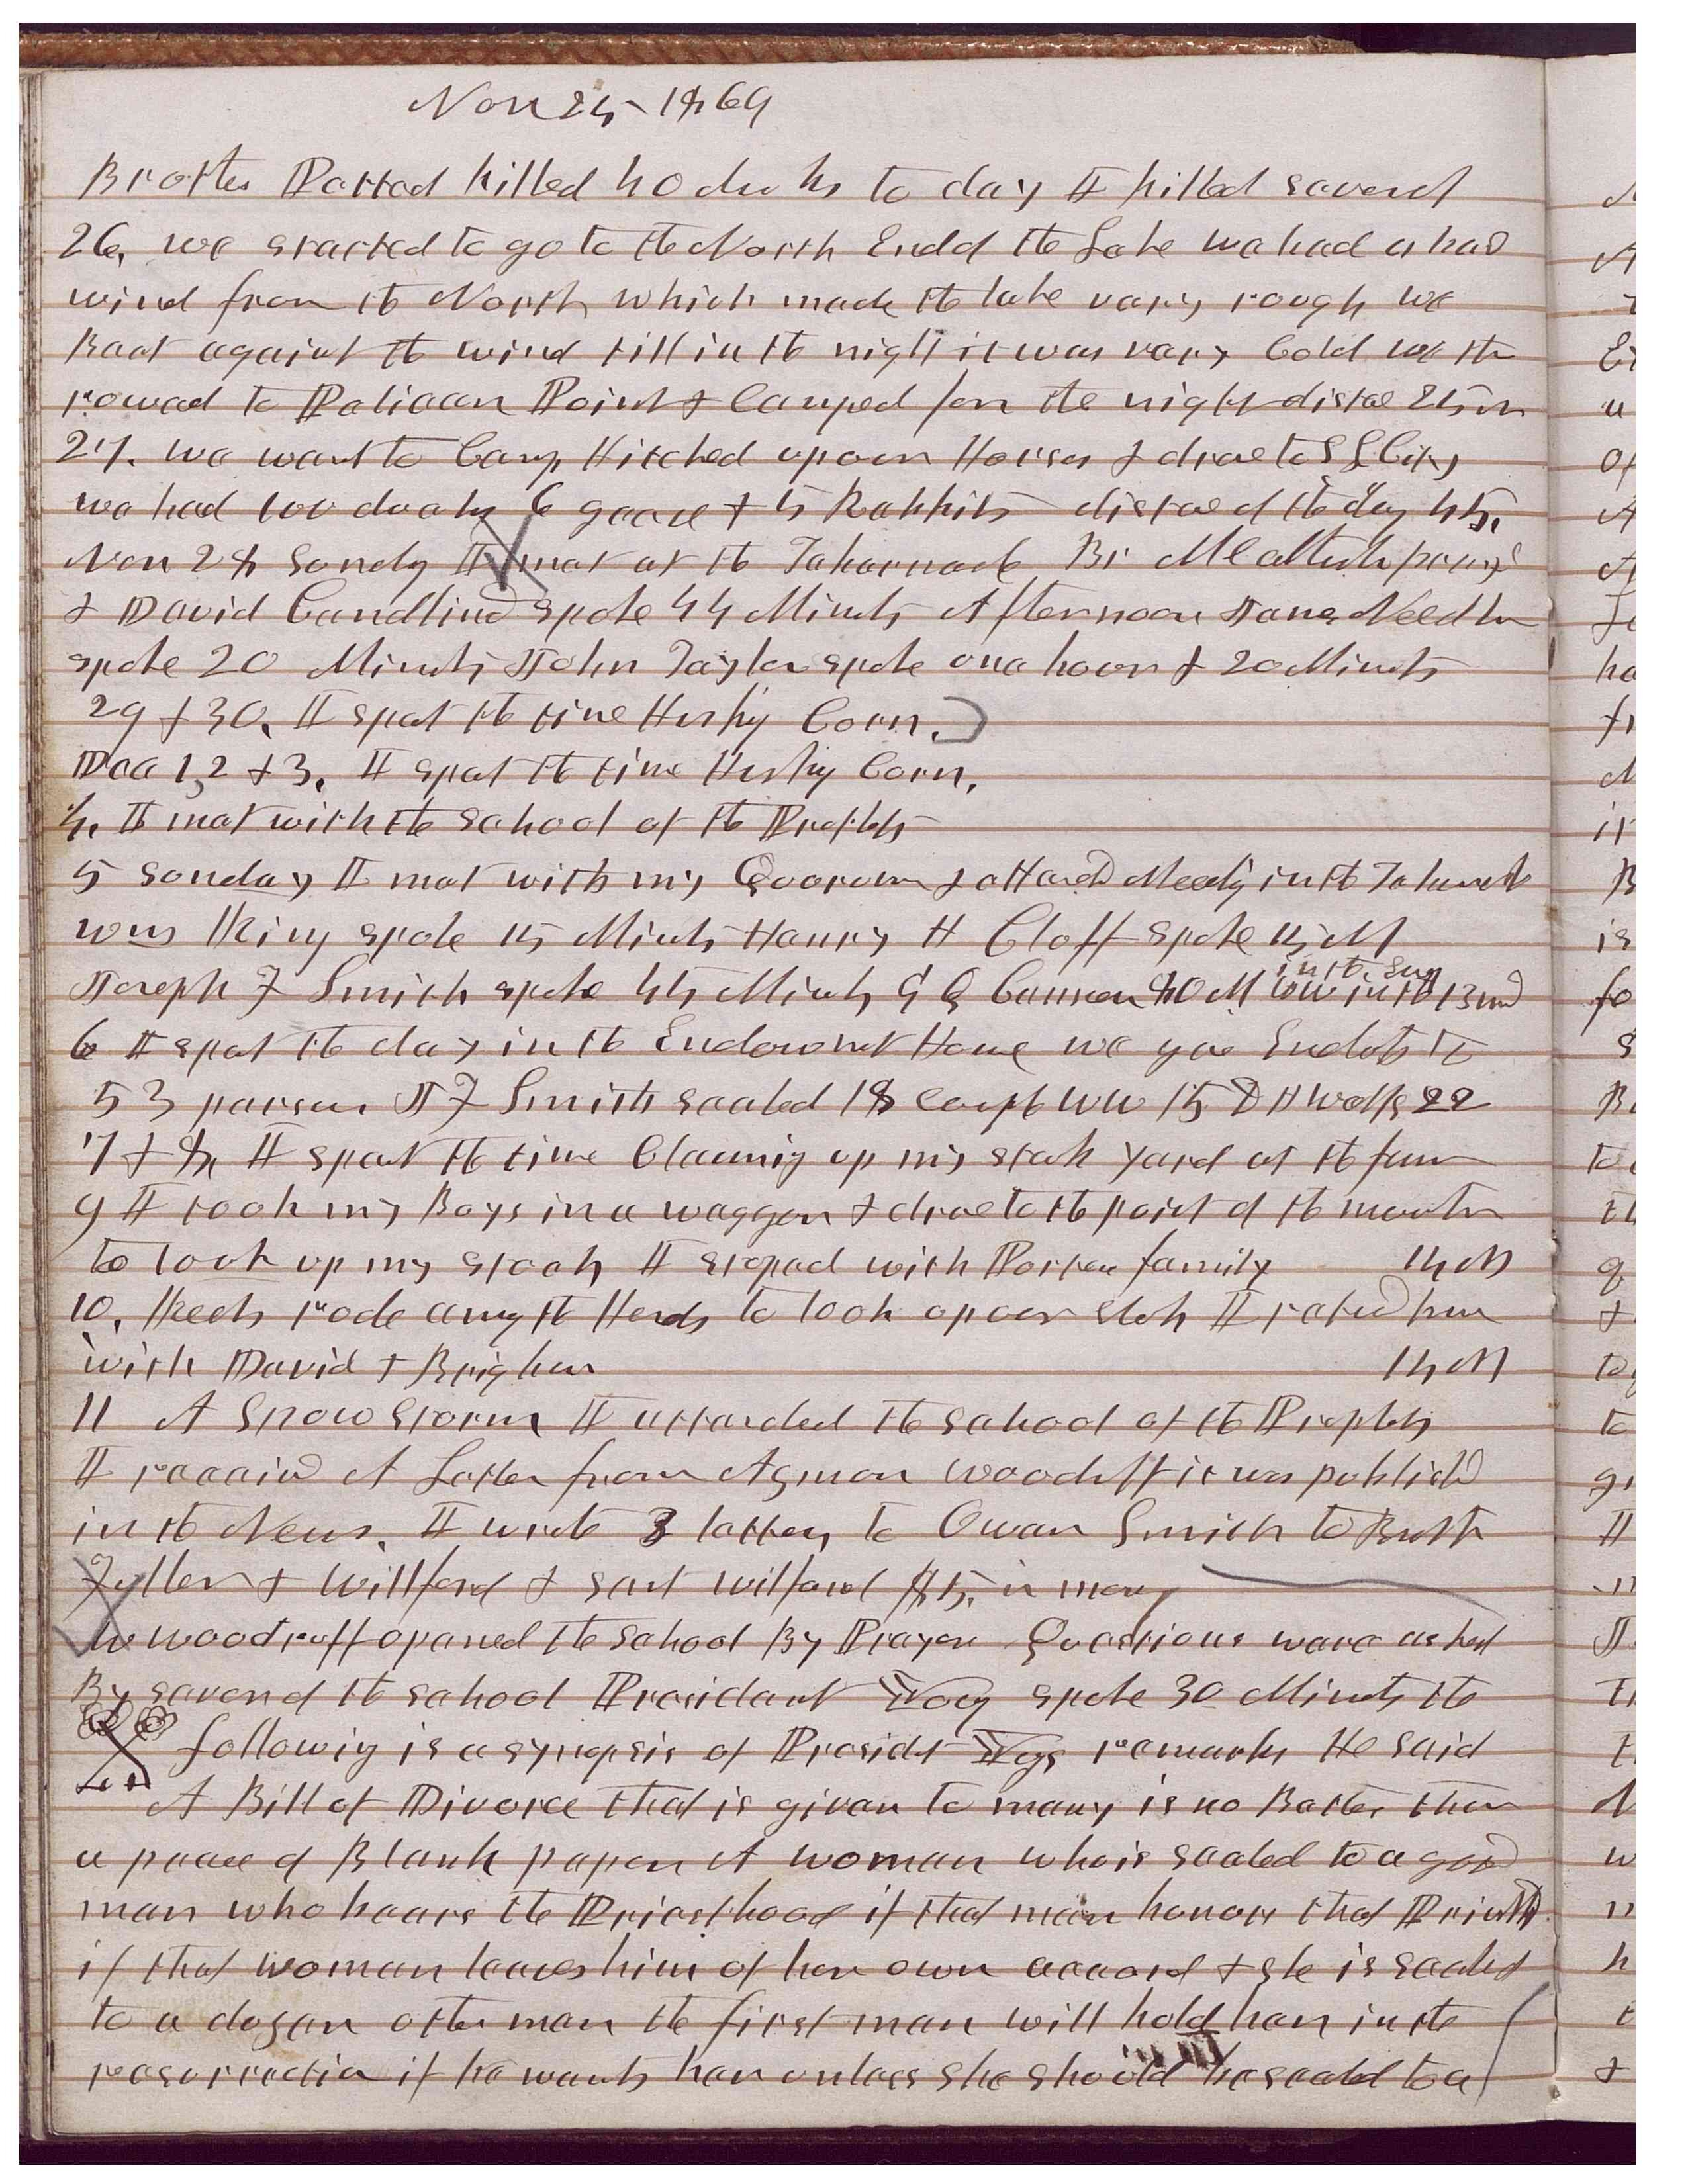 Nov 25 1869
Brother Porter killed 40 ducks to day I killed several
26. we started to go to the North End of the Lake we had a had
wind from the North which made the lake vary rough we
Beat against the wind till in the night it was vary Cold we then
rowed to Pelican Point & Camped for the night distance 25 m
27. we went to Camp Hitched up our Horses & drove to S L City
we had 100 ducks 6 geese & 5 Rabbits distance of the day 45.
Nov 28 Sunday I met at the Tabernacle Br prayed
& David Candland spoke 44 Minuts Afternoon James Needham
spoke 20 Minuts John Taylor spoke one hour & 20 Minuts
29 & 30. I spent the time Husking Corn.
Dec 1, 2 & 3. I spent the time Husking Corn.
4. I met with the School of the Prophets
5 Sunday I met with my Quorum & attend Meeting in the Tabernacle
spoke 15 Minuts Henry H Cloff spoke 15 M
Joseph F Smith spoke 45 Minuts G Q Cannon 40 M WW in the 13 wd
in the Eving
6 I spent the day in the Endowmet House we gave Endowmets to
53 persons J F Smith sealed 18 Coupls WW 15 D H Wells 22
7 & 8, I spent the time Cleaning up my stack yard at the farm
9 I took my Boys in a waggon & drove to the point of the mountain
to look up my stock I stoped with Porter family 14 M
10. Keets rode among the Herds to look up our stock I returned home
with David & Brigham 14 M
11 A Snow storm I attended the school of the Prophets
I received A Letter from Azmon Woodruff it was published
in the News. I wrote 3 letters to Owen Smith to Brother
Fuller & Willford & sent wilford $15. in money
W Woodruff opened the School By Prayer Questions ware asked
By several of the school Presidant Young spoke 30 Minuts the
following is a synopsis of Presidet Youngs remarks He said
A Bill of Divorce that is given to many is no Better than
a peace of Blank paper A woman who is sealed to a good
man who bears the Priesthood if that man honors that Priesthood
if that woman leaves him of her own accord & she is sealed
to a dozen other men the first man will hold her in the
resurrection if he wants her unless she should be sealed to a